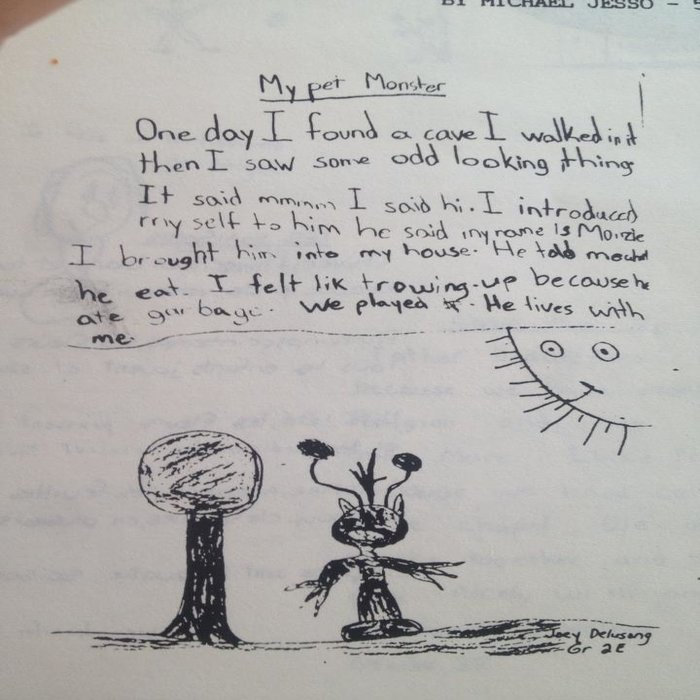 BY MICHAEL JESSO - 5
My pet Monster
One day I found a cave I walked in it
then I saw some odd looking things
It said mmmm I said hi. I introduced
my self to him he said my name is
I brought him into my house. He told me
he eat. I felt lik trowing-up because he
ate garbage. We played. He lives with
me.
Joey Delusong
Gr 2E